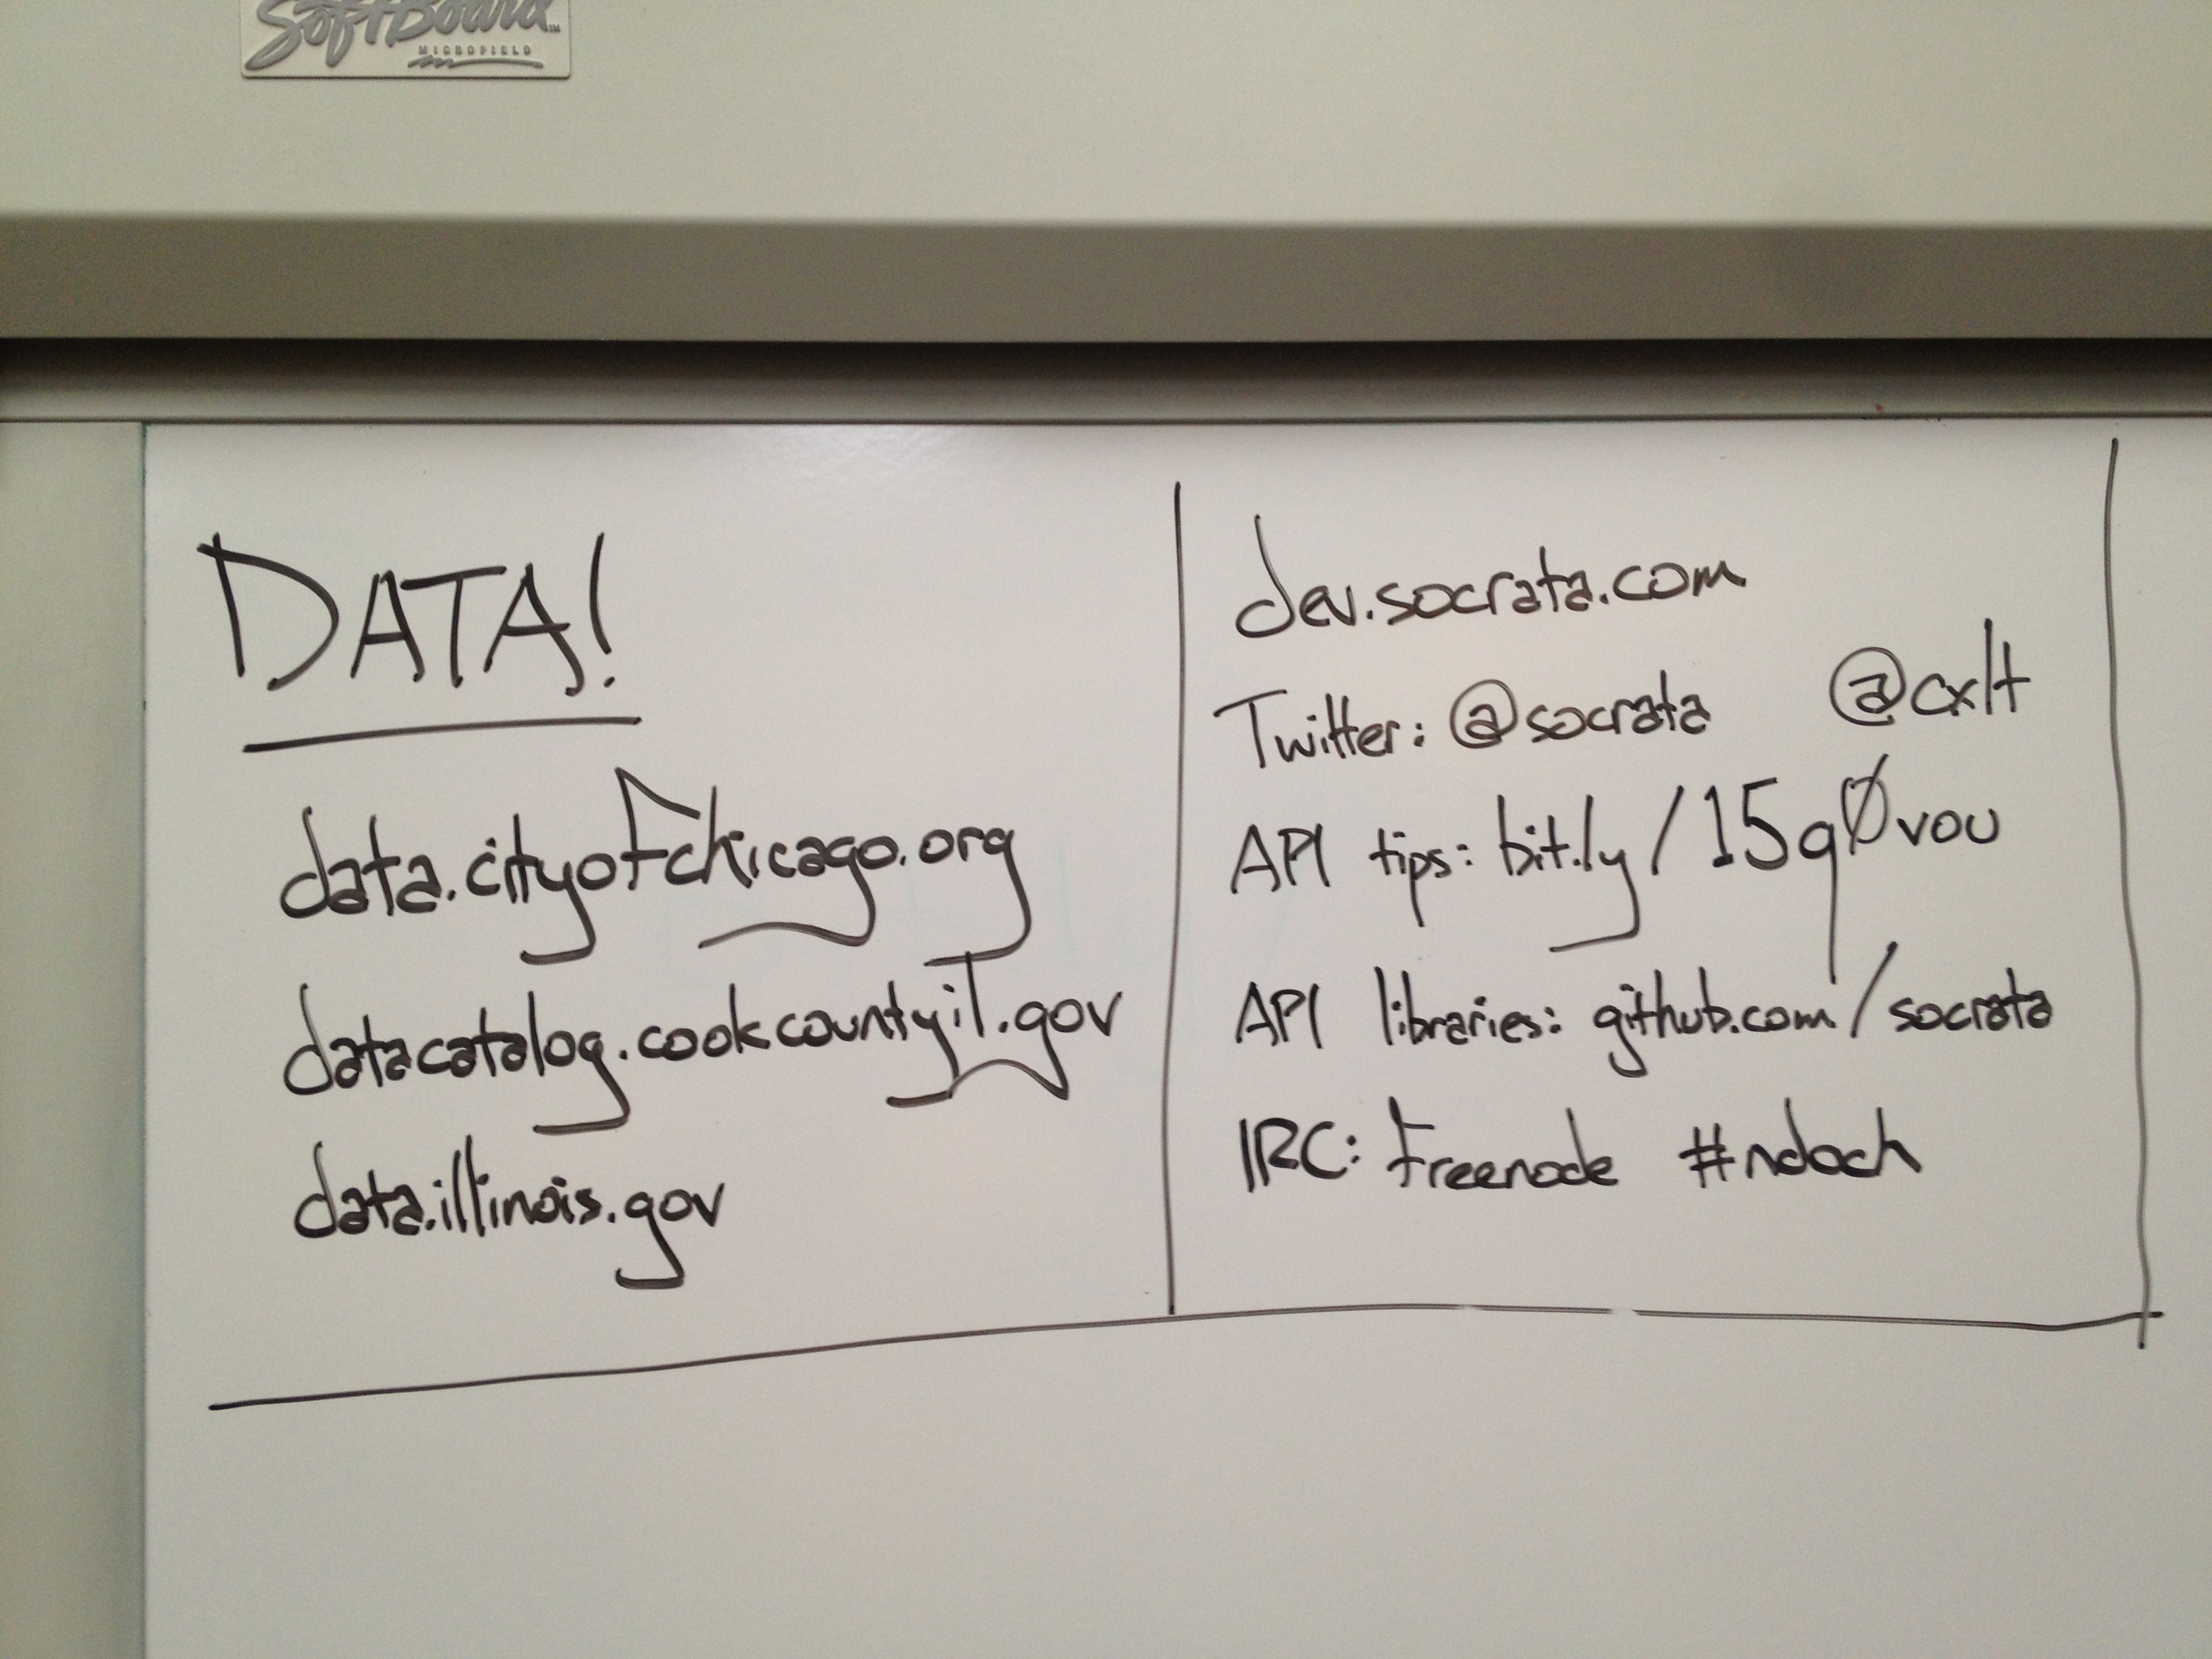 SoftBoard™
MICROFIELD
DATA!
data.cityofchicago.org
datacatalog.cookcountyil.gov
data.illinois.gov
dev.socrata.com
Twitter: @socrata @cxlt
API tips: bit.ly/15q0vou
API libraries: github.com/socrata
IRC: Freenode #ndoch